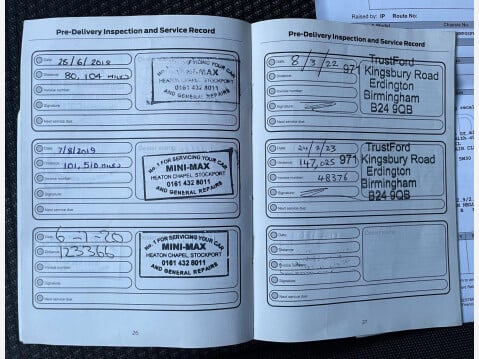 Pre-Delivery Inspection and Service Record
Date 26/6/2018
Distance 80,104 miles
Invoice number
Signature
Next service due
No. 1 FOR SERVICING YOUR CAR
MINI-MAX
HEATON CHAPEL, STOCKPORT
0161 432 8011
AND GENERAL REPAIRS
Date 7/8/2019
Distance 101,510 miles
Invoice number
Signature
Next service due
No. 1 FOR SERVICING YOUR CAR
MINI-MAX
HEATON CHAPEL, STOCKPORT
0161 432 8011
AND GENERAL REPAIRS
Date -6-1-20
Distance 123366
Invoice number
Signature
Next service due
No. 1 FOR SERVICING YOUR CAR
MINI-MAX
HEATON CHAPEL, STOCKPORT
0161 432 8011
AND GENERAL REPAIRS
26
Pre-Delivery Inspection and Service Record
Date 8/3/22
Distance 971
Invoice number
Signature
Next service due
TrustFord
Kingsbury Road
Erdington
Birmingham
B24 9QB
Date 24/2/23
Distance 147,025 971
Invoice number 48376
Signature
Next service due
TrustFord
Kingsbury Road
Erdington
Birmingham
B24 9QB
Date
Distance
Invoice number
Signature
Next service due
27
Raised by: IP Route No:
Model Chassis No